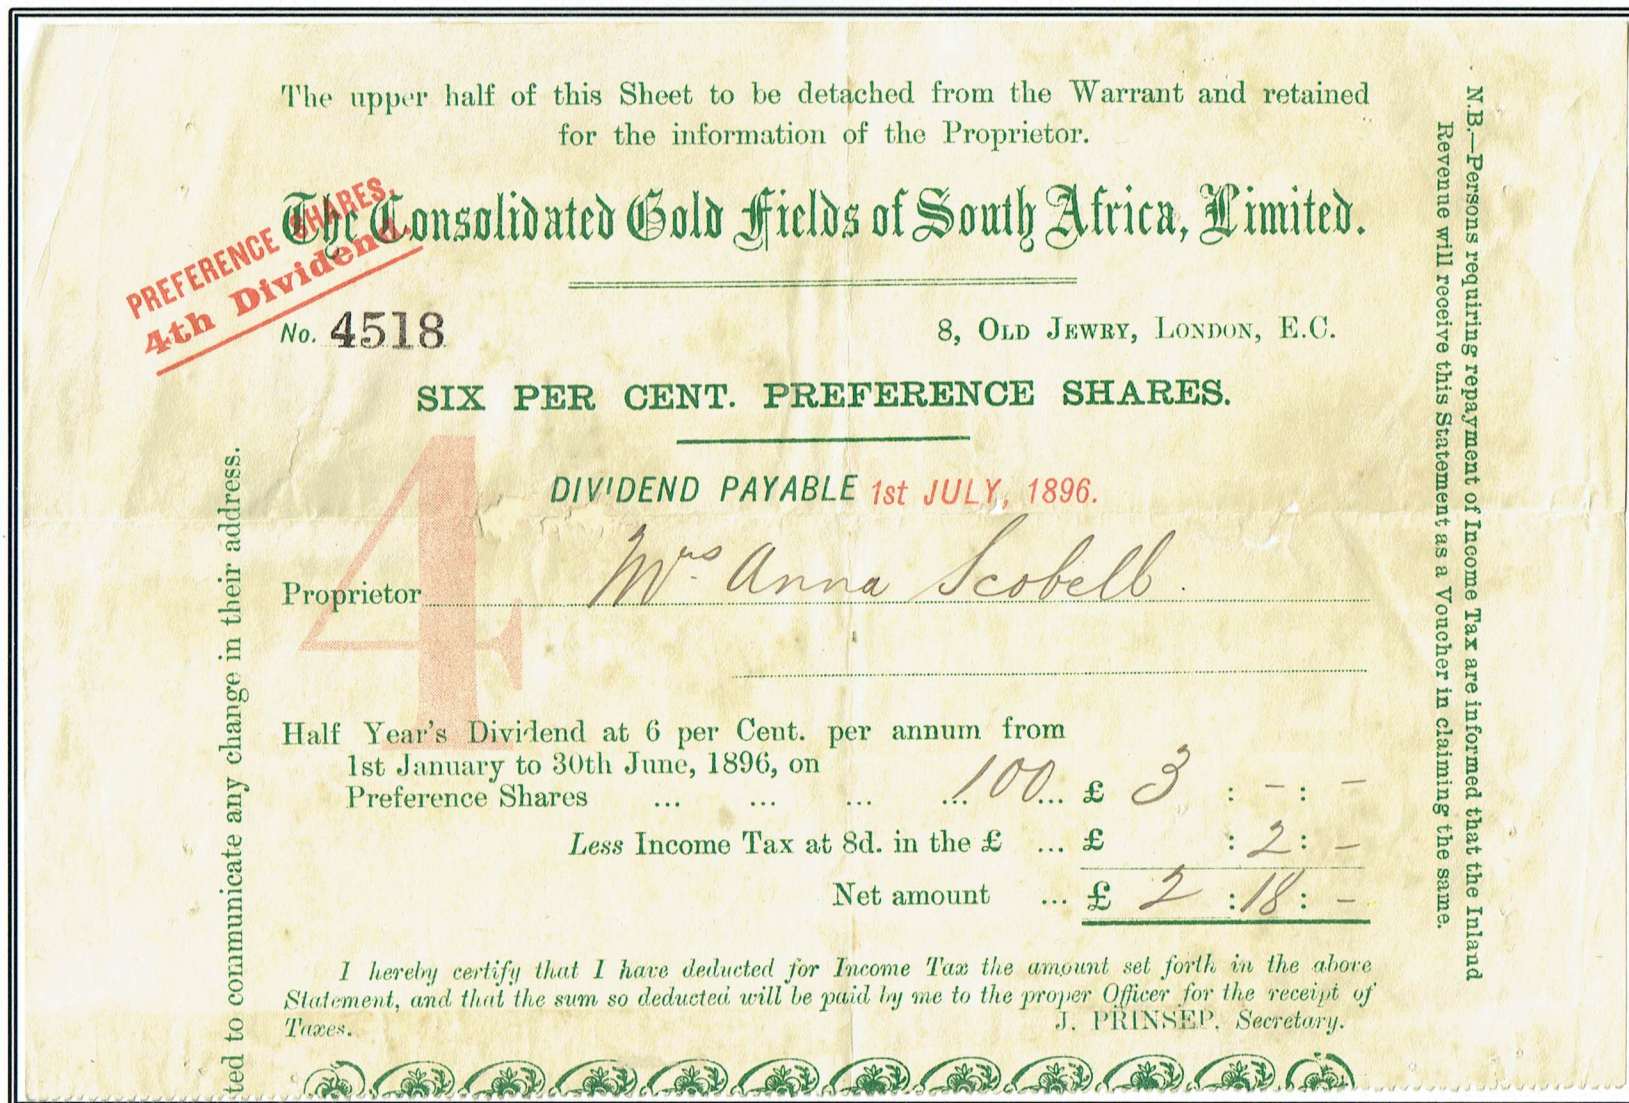 The upper half of this Sheet to be detached from the Warrant and retained
for the information of the Proprietor.
PREFERENCE SHARES,
4th Dividend.
The Consolidated Gold Fields of South Africa, Limited.
No. 4518
8, OLD JEWRY, LONDON, E.C.
SIX PER CENT. PREFERENCE SHARES.
4
DIVIDEND PAYABLE 1st JULY, 1896.
Proprietor Mrs. Anna Scobell.
Half Year's Dividend at 6 per Cent. per annum from
1st January to 30th June, 1896, on
Preference Shares ... ... ... ... 100 ... £ 3 : - : -
Less Income Tax at 8d. in the £ ... £ : 2 : -
Net amount ... £ 2 : 18 : -
I hereby certify that I have deducted for Income Tax the amount set forth in the above
Statement, and that the sum so deducted will be paid by me to the proper Officer for the receipt of
Taxes.
J. PRINSEP, Secretary.
ted to communicate any change in their address.
N.B.—Persons requiring repayment of Income Tax are informed that the Inland
Revenue will receive this Statement as a Voucher in claiming the same.